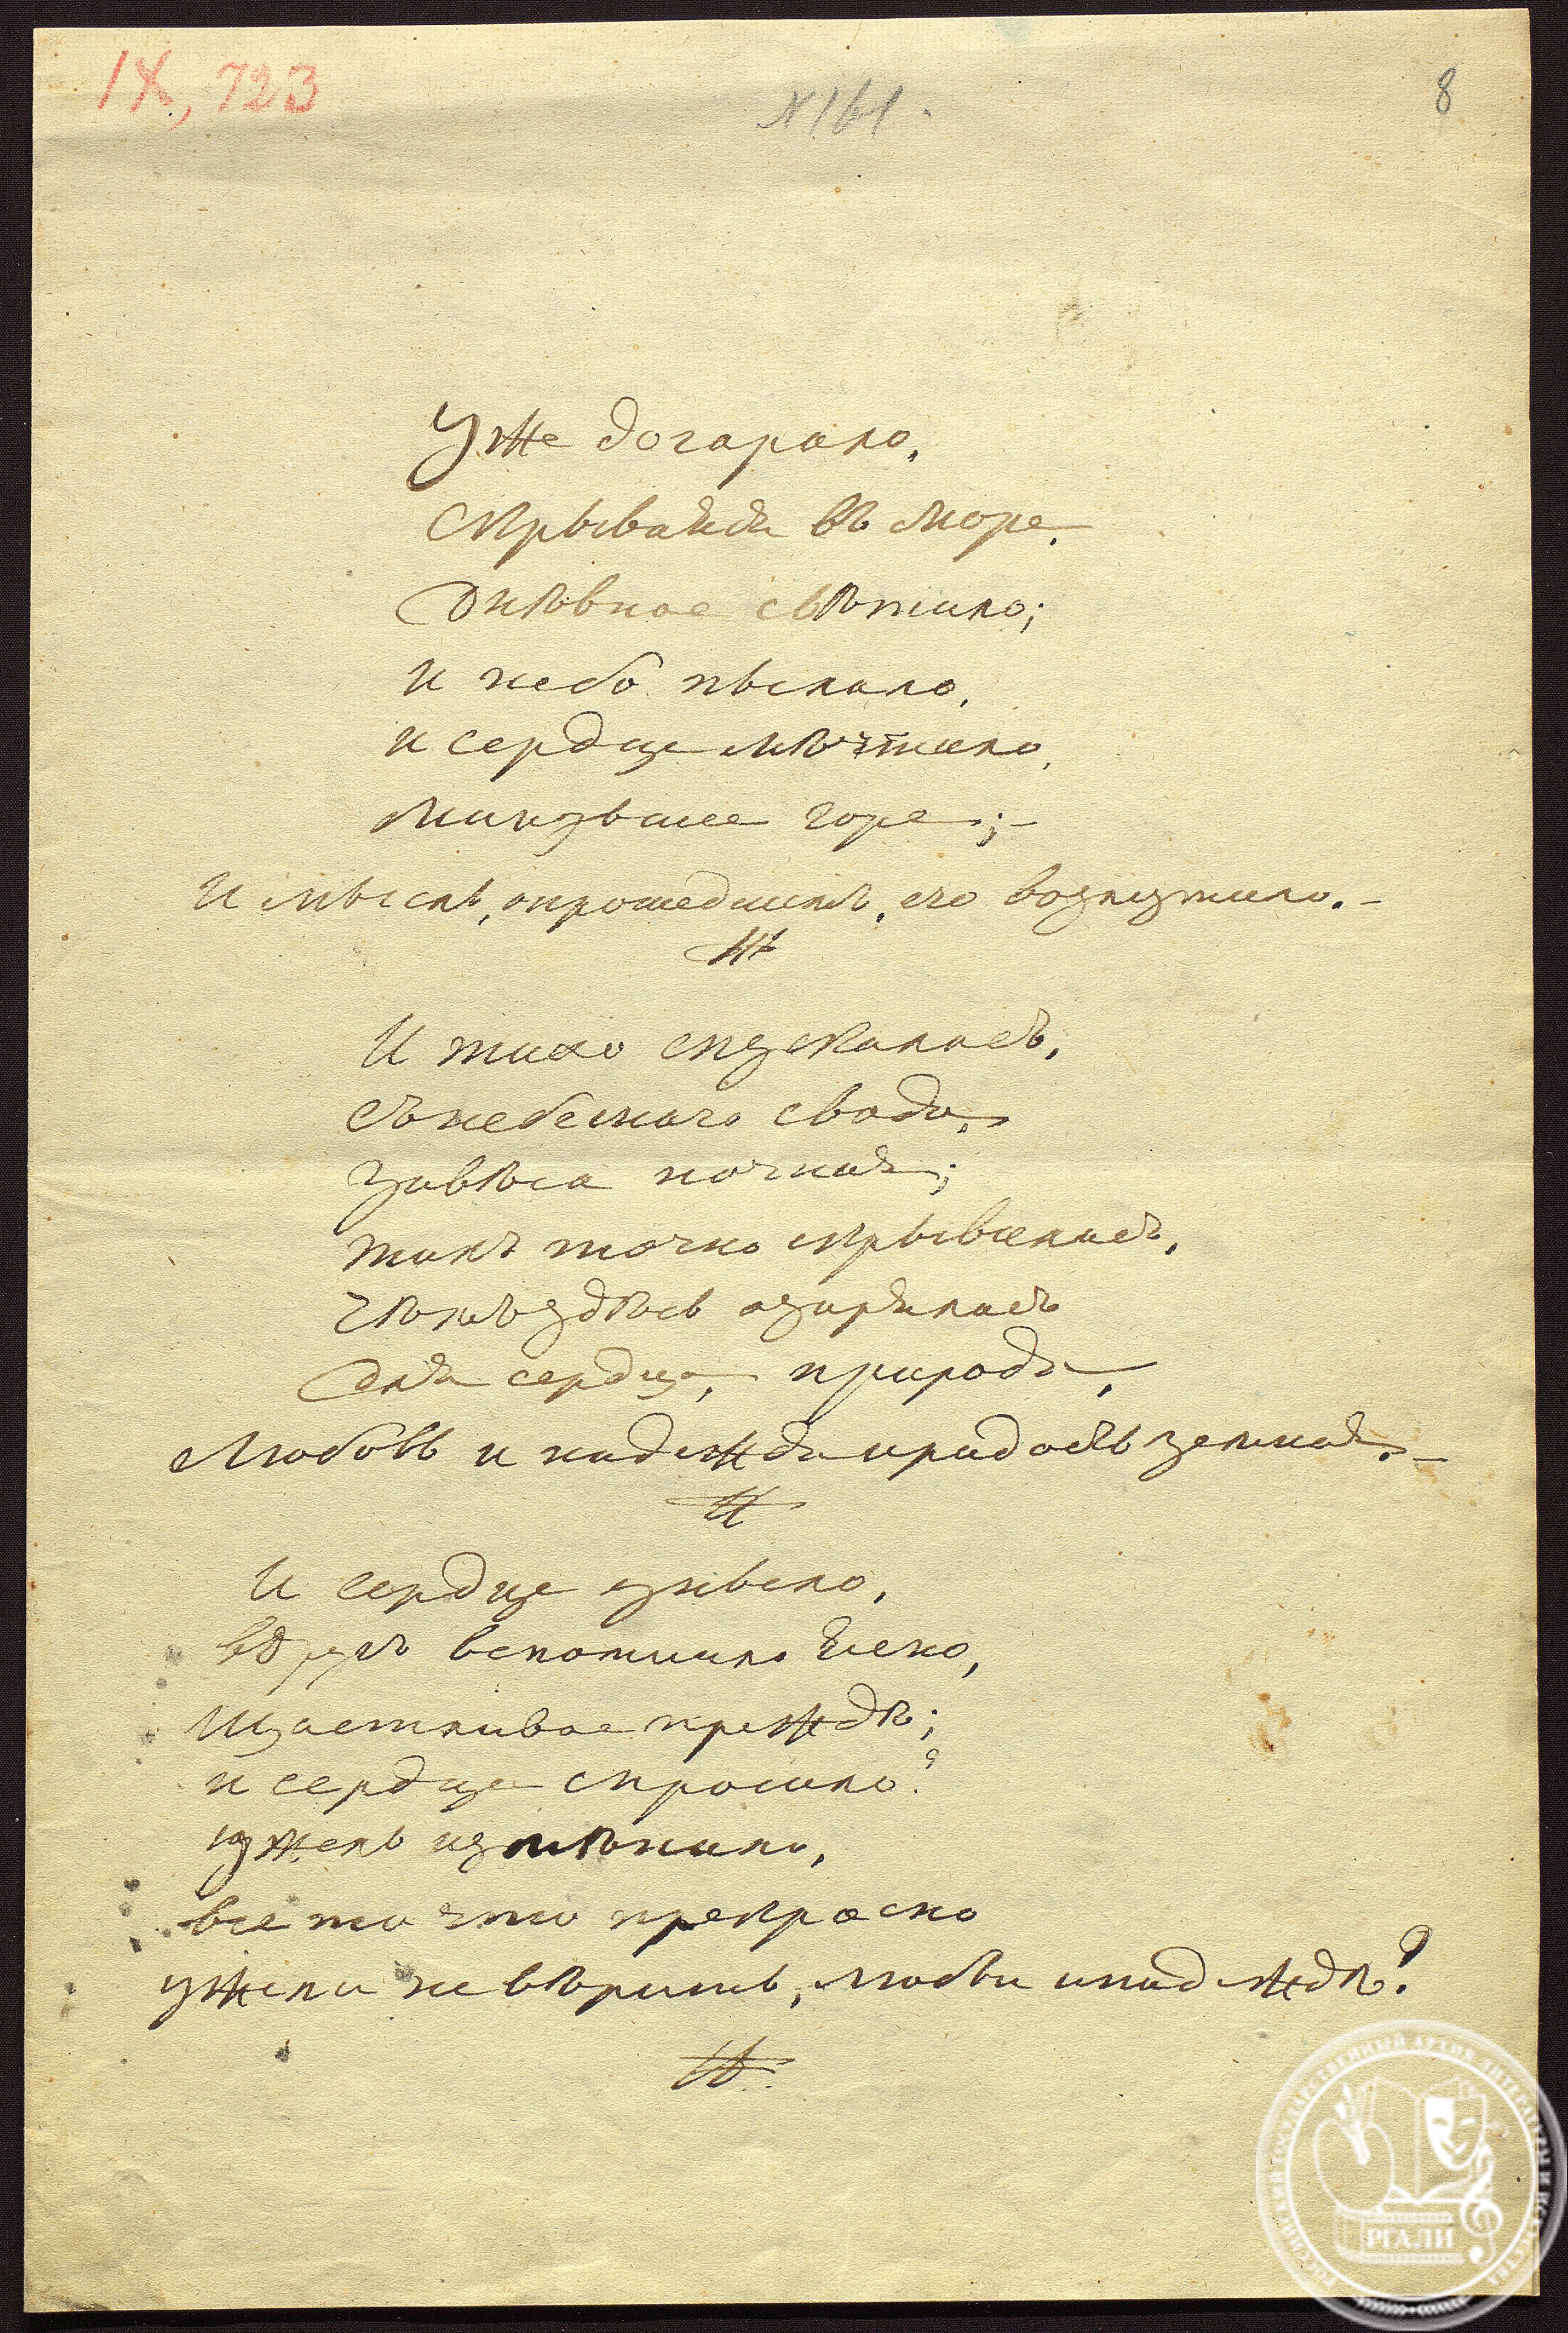 IX, 723
N 161.
8
Уже догарало,
Скрываясь въ море,
Днѣвное свѣтило;
И небо пылало,
и сердце мѣчтало,
Минувшее горе;-
И мысль, опрошедшемъ, его возмутило.-
И тихо спускалась,
Съ небеснаго свода,
Завѣса ночная;
такъ точно скрывалась,
Чѣмъ здѣсь озарялась
Для сердца, природа,
Любовь и надежда ирадость земная.-
И сердце уныло,
вдругъ вспомнило ясно,
Щастливое преждѣ;
и сердце спросило?
ужель измѣнило,
все то что прекрасно
ужели не вѣришь, любви инадеждѣ?
РГАЛИ